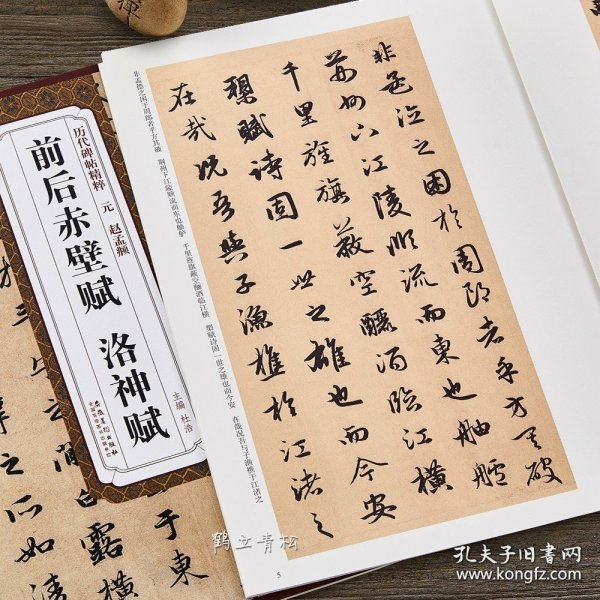 非孟德之困於周郎者乎方其破
荆州下江陵順流而東也舳艫
千里旌旗蔽空釃酒臨江橫
槊賦詩固一世之雄也而今安
在哉況吾與子漁樵於江渚之
非孟德之困于周郎者乎方其破 荆州下江陵顺流而东也舳舻 千里旌旗蔽空酾酒临江横 槊赋诗固一世之雄也而今安 在哉况吾与子渔樵于江渚之
5
历代碑帖精粹 元 赵孟頫
前后赤壁赋 洛神赋
主编 杜浩
安徽美术出版社
于東
白露橫
之所如
鹤立青松
孔夫子旧书网
www.kongfz.com